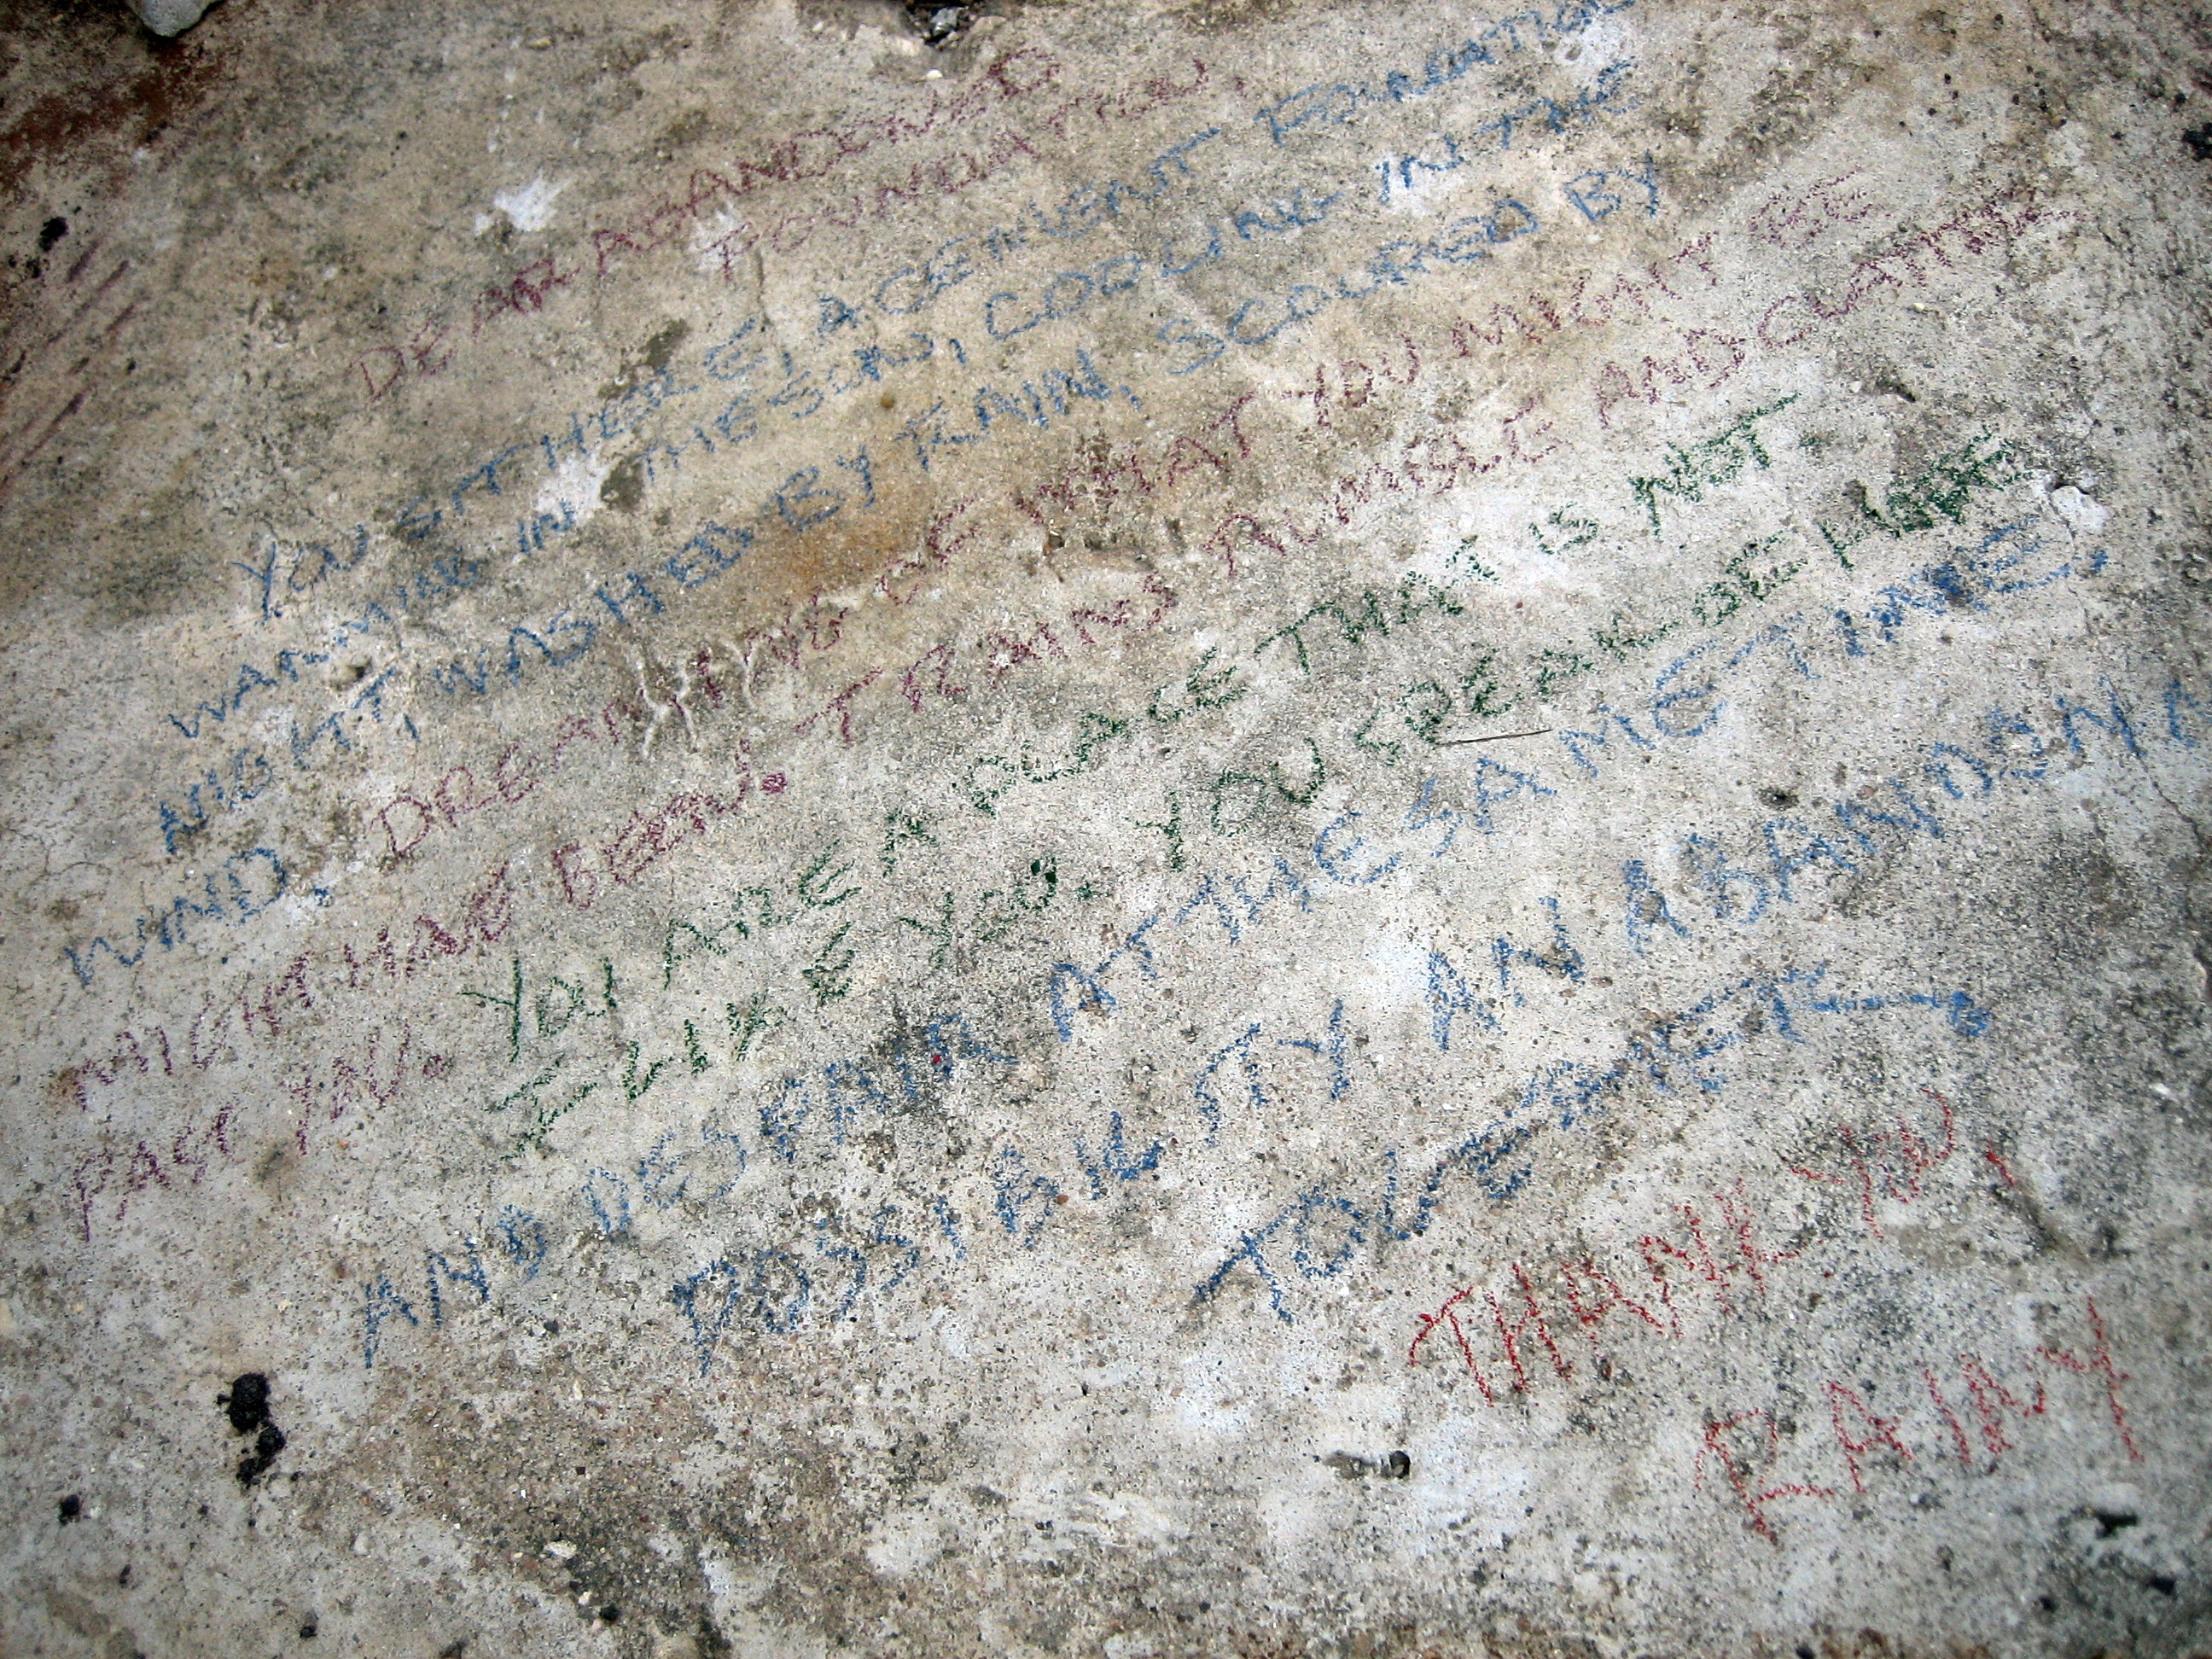 DEAR ABANDONED
FOUNDATION,
YOU SIT THERE, A CEMENT FOUNDATION
WARMING IN THE SUN, COOLING IN THE
NIGHT, WASHED BY RAIN, SCOURED BY
WIND.
DREAMING OF WHAT YOU MIGHT BE
MIGHT HAVE BEEN. TRAINS RUMBLE AND CLANK
PAST YOU.
YOU ARE A PLACE THAT IS NOT.
I LIKE YOU. YOU SPEAK OF HOPE
AND DESPAIR AT THE SAME TIME,
POSSIBILITY AN ABANDONMENT
TOGETHER
THANK YOU,
RAINY